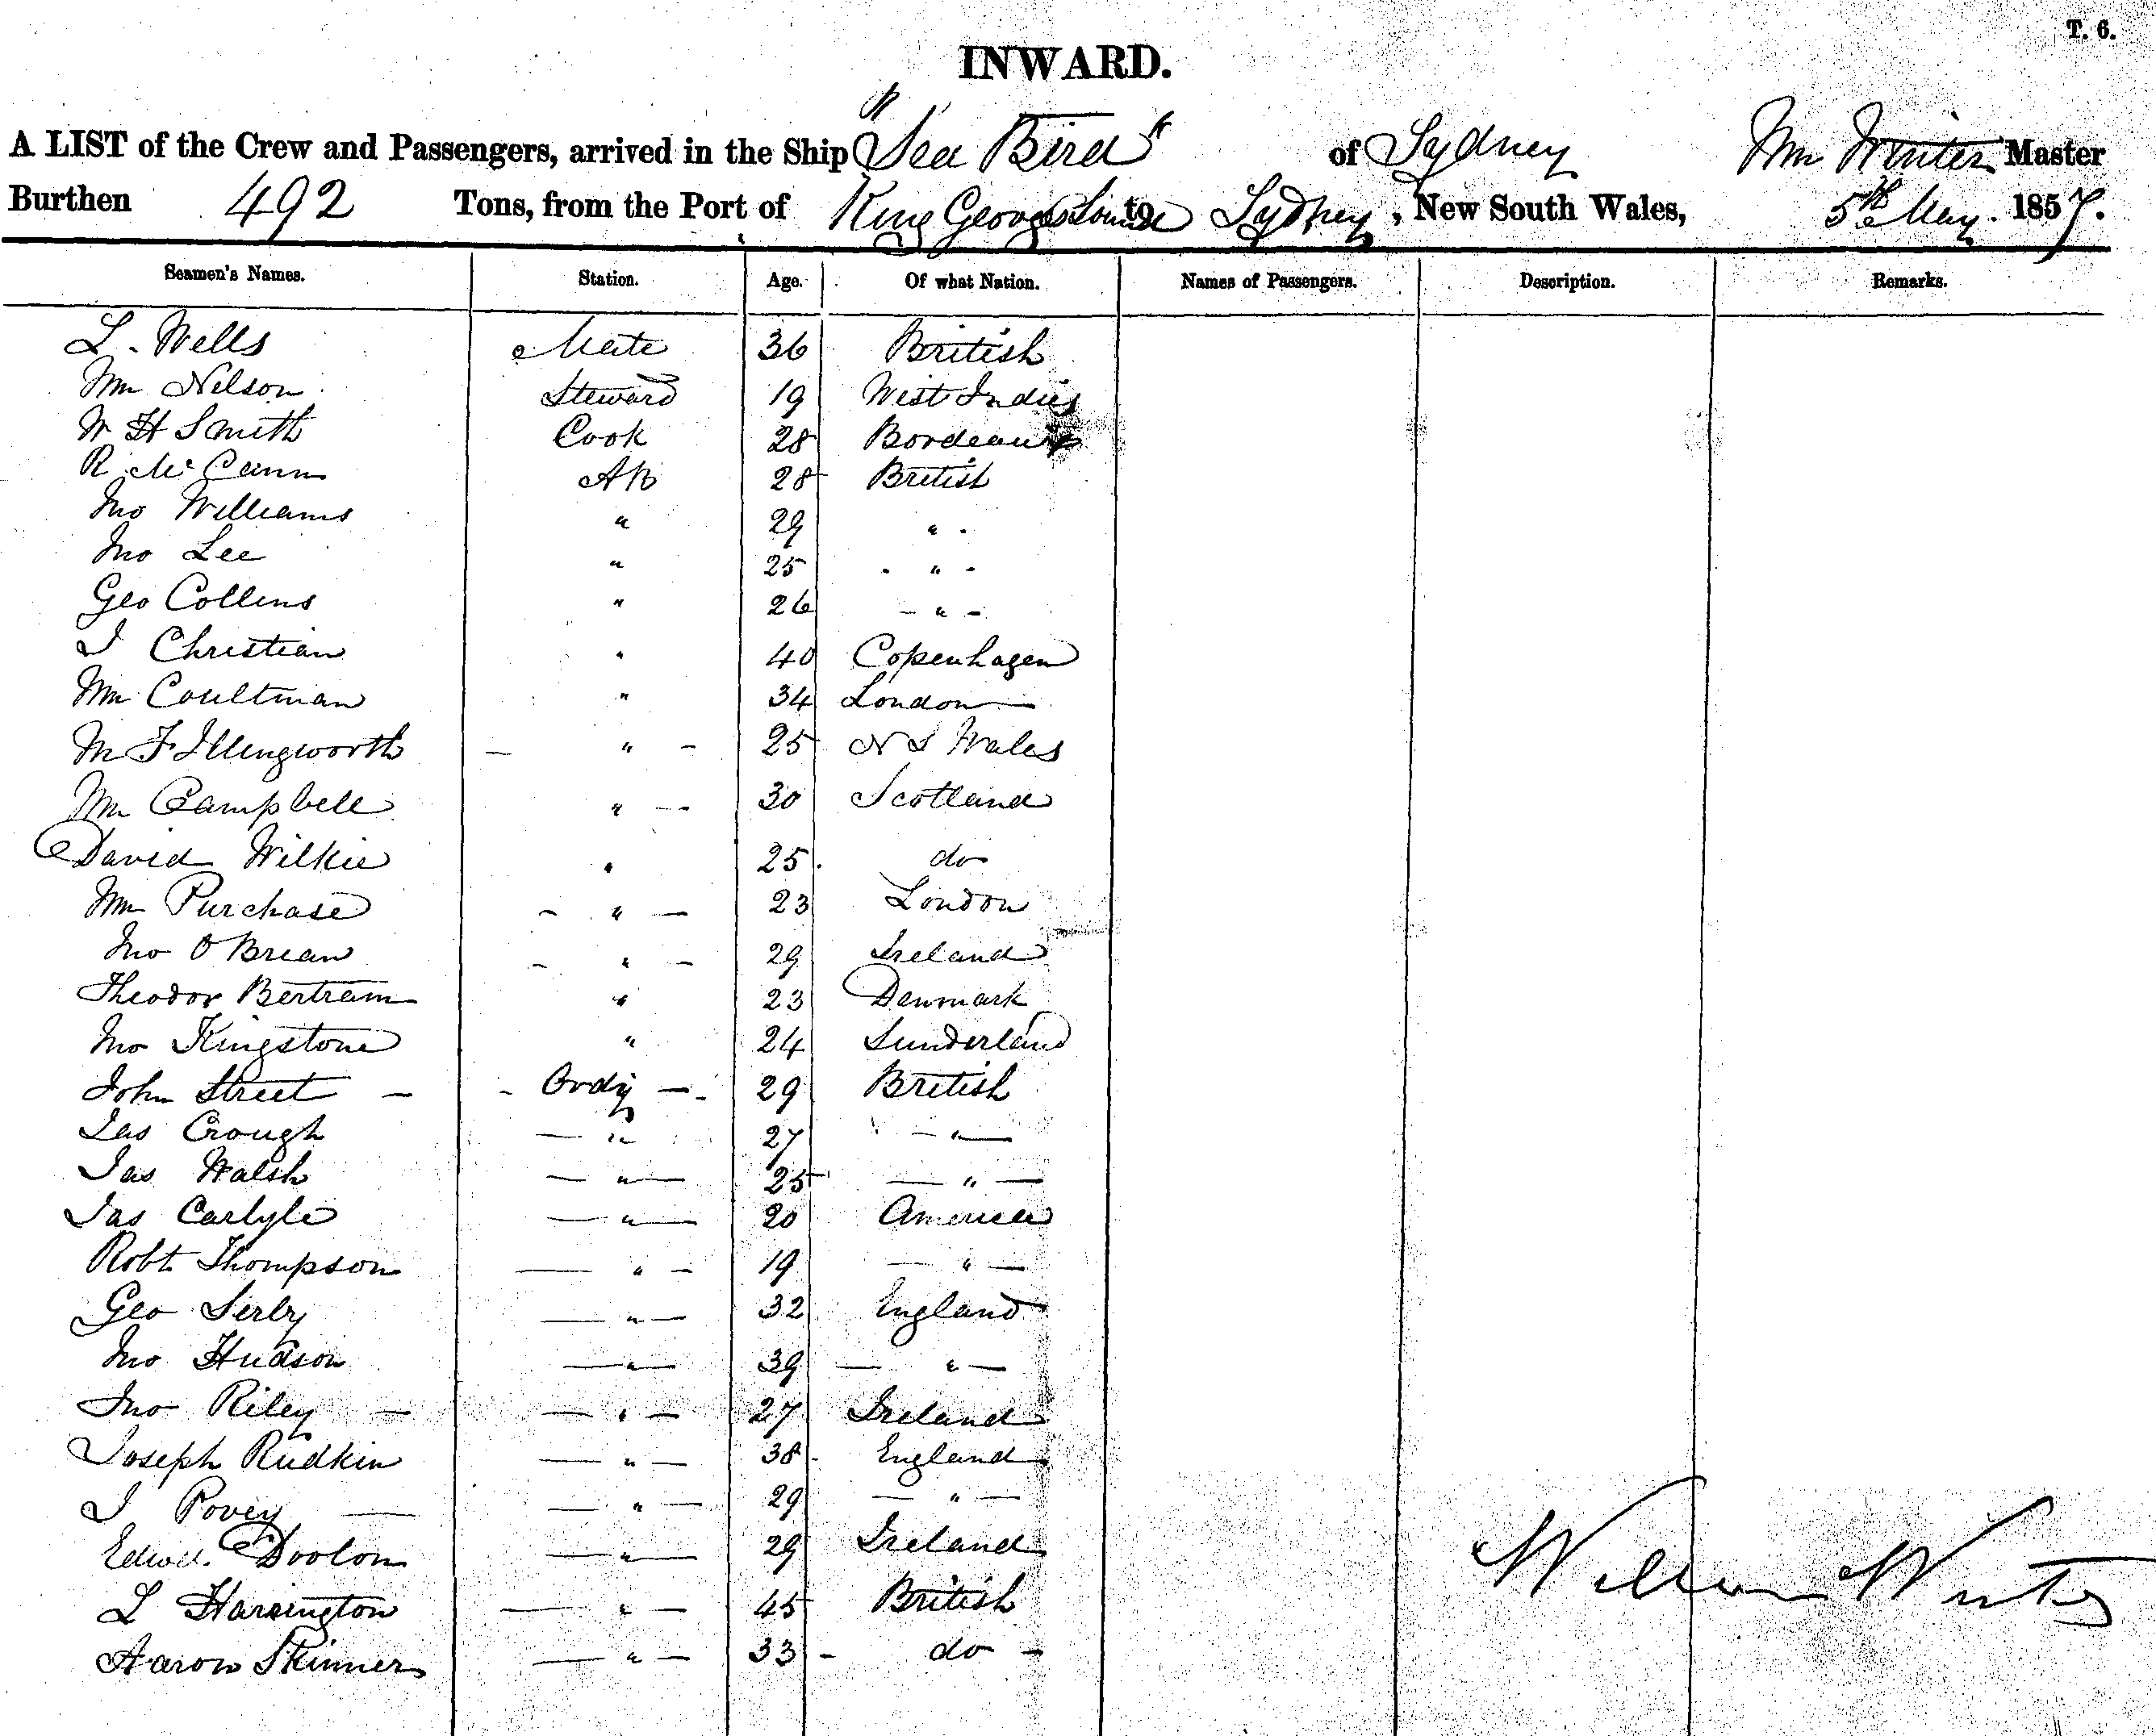 T. 6.
INWARD.
A LIST of the Crew and Passengers, arrived in the Ship "Sea Bird" of Sydney Wm Winter Master
Burthen 492 Tons, from the Port of King Georges Sound to Sydney, New South Wales, 5th May. 1857.
Seamen's Names. Station. Age. Of what Nation. Names of Passengers. Description. Remarks.
L. Wells Mate 36 British
Wm Nelson Steward 19 West Indies
W H Smith Cook 28 Bordeaux
R. McCann AB 28 British
Jno Williams " 29 "
Jno Lee " 25 "
Geo Collins " 26 - " -
J Christian " 40 Copenhagen
Wm Coultman " 34 London
M F Illingworth - " - 25 N S Wales
Wm Campbell " - 30 Scotland
David Wilkie " 25 do
Wm Purchase - " - 23 London
Jno O Brian - " - 29 Ireland
Theodor Bertram " 23 Denmark
Jno Kingstone " 24 Sunderland
John Street - - Ordy - 29 British
Jas Crough - " 27 - " -
Jas Walsh - " - 25 - " -
Jas Carlyle - " - 20 America
Robt Thompson - " - 19 - " -
Geo Serby - " - 32 England
Jno Hudson - " - 39 - " -
Jno Riley - - " - 27 Ireland
Joseph Rudkin - " - 38 England
J Povey - - " - 29 - " -
Edwd. Doolon - " - 29 Ireland
L Harrington - " - 45 British
Aaron Skinner - " - 33 - do -
William Winter